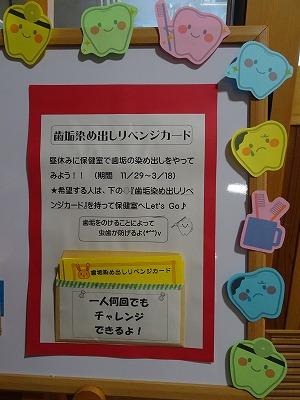 歯垢染め出しリベンジカード
昼休みに保健室で歯垢の染め出しをやって
みよう！！　（期間　11/29～3/18）
★希望する人は、下の♡『歯垢染め出しリベ
ンジカード』を持って保健室へLet's Go♪
歯垢をのけることによって
虫歯が防げるよ(^^)v
歯垢染め出しリベンジカード
一人何回でも
チャレンジ
できるよ！